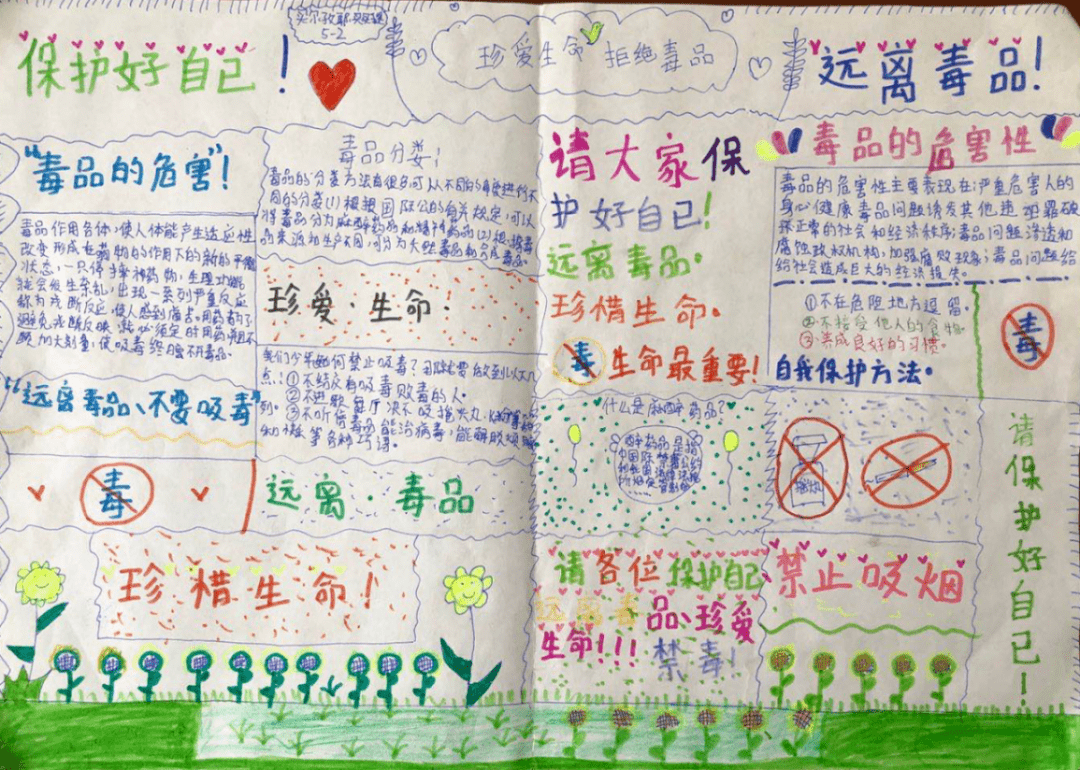 5-2
保护好自己！
珍爱生命 拒绝毒品
远离毒品！
"毒品的危害"！
毒品作用各体，使人体能产生适应性
改变形成在药物的作用下的新的平衡
状态，一只停掉药物，生理功能
就会发生紊乱，出现一系列严重反应
称为戒断反应，使人感到痛苦。用药者为了
避免戒断反映，就必须定时用药
加大剂量，使吸毒终
"远离毒品、不要吸毒"
毒
毒品分类！
毒品的分类方法有很多可以从不同的角度进行不
同的分类(1)根据国际公约有关规定，可以
将毒品分为麻醉药品和精神药品(2)根据毒
品来源和生产不同，可分为天然毒品和合成毒品。
珍爱·生命·
我们少年如何禁止吸毒？
点！①不结交有吸毒贩毒的人。
②不进歌舞厅决不吸摇头丸、
③不听信毒品能治病毒，能解脱烦恼
和痛苦等各种巧语。
远离·毒品
珍惜生命！
请大家保
护好自己！
远离毒品。
珍惜生命。
毒 生命最重要！
什么是麻醉药品？
麻醉药品是指
请各位保护自己
远离毒品、珍爱
生命！！！ 禁毒！
毒品的危害性
毒品的危害性主要表现在：严重危害人的
身心健康毒品问题诱发其他违法犯罪破
坏正常的社会和经济秩序；毒品问题渗透和
腐蚀政权机构，加强腐败现象；毒品问题给
给社会造成巨大的经济损失。
①不在危险地方逗留。
②不接受他人的食物。
③养成良好的习惯。
自我保护方法。
毒
禁止吸烟
请保护好自己！